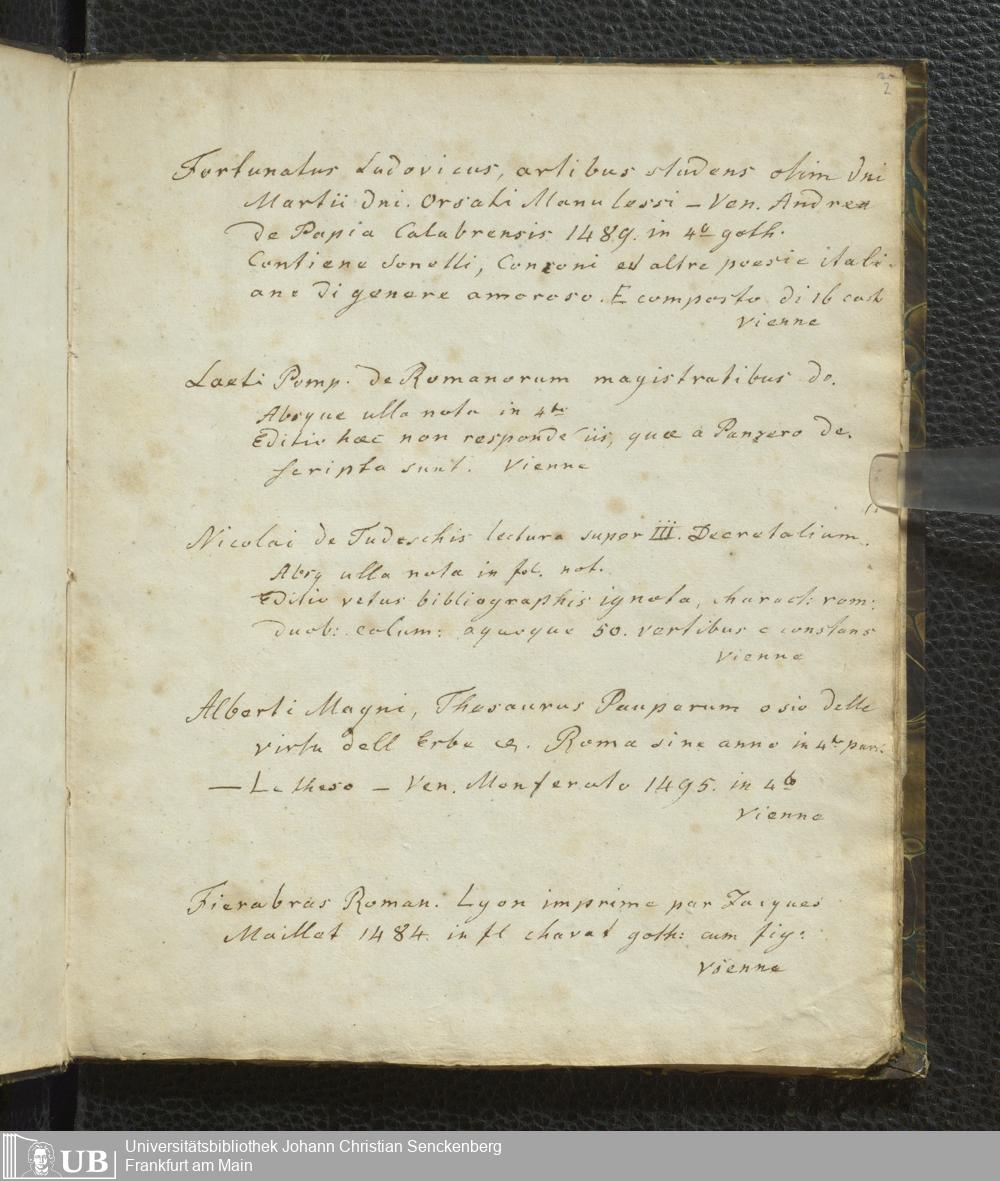 2
Fortunatus Ludovicus, artibus studens olim Dni
Martii Dni. Orsati Manu lessi – Ven. Andrea
de Papia Calabrensis 1489. in 4º goth.
Contiene Sonetti, Conzoni ed altre poesie itali-
ane di genere amoroso. E composto di 16 cart
Vienne
Laeti Pomp. de Romanorum magistratibus do.
Absque ulla nota in 4to
Editio haec non responde iis, quae a Panzero de.
scripta sunt. Vienne
Nicolai de Tudeschis lectura super III. Decretalium.
Absq ulla nota in fol. not.
Editio vetus bibliographis ignota, charact: rom:
duob: colum: aquoque 50. vertibus constans
Vienne
Alberti Magni, Thesaurus Pauperum osio delle
virtu dell Erbe &. Roma sine anno in 4to
— Lo theso — Ven. Monferato 1495. in 4to
Vienne
Fierabras Roman. Lyon imprime par Jacques
Maillet 1484. in fl charat goth: cum fig:
Vienne
UB
Universitätsbibliothek Johann Christian Senckenberg
Frankfurt am Main